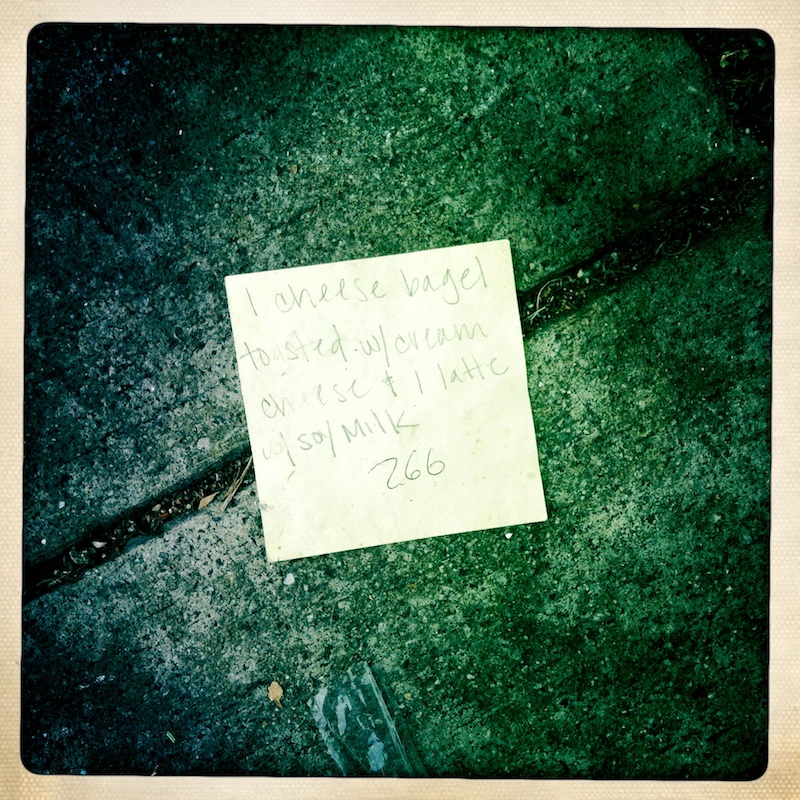 1 cheese bagel
toasted w/cream
cheese & 1 latte
w/ soy Milk
266